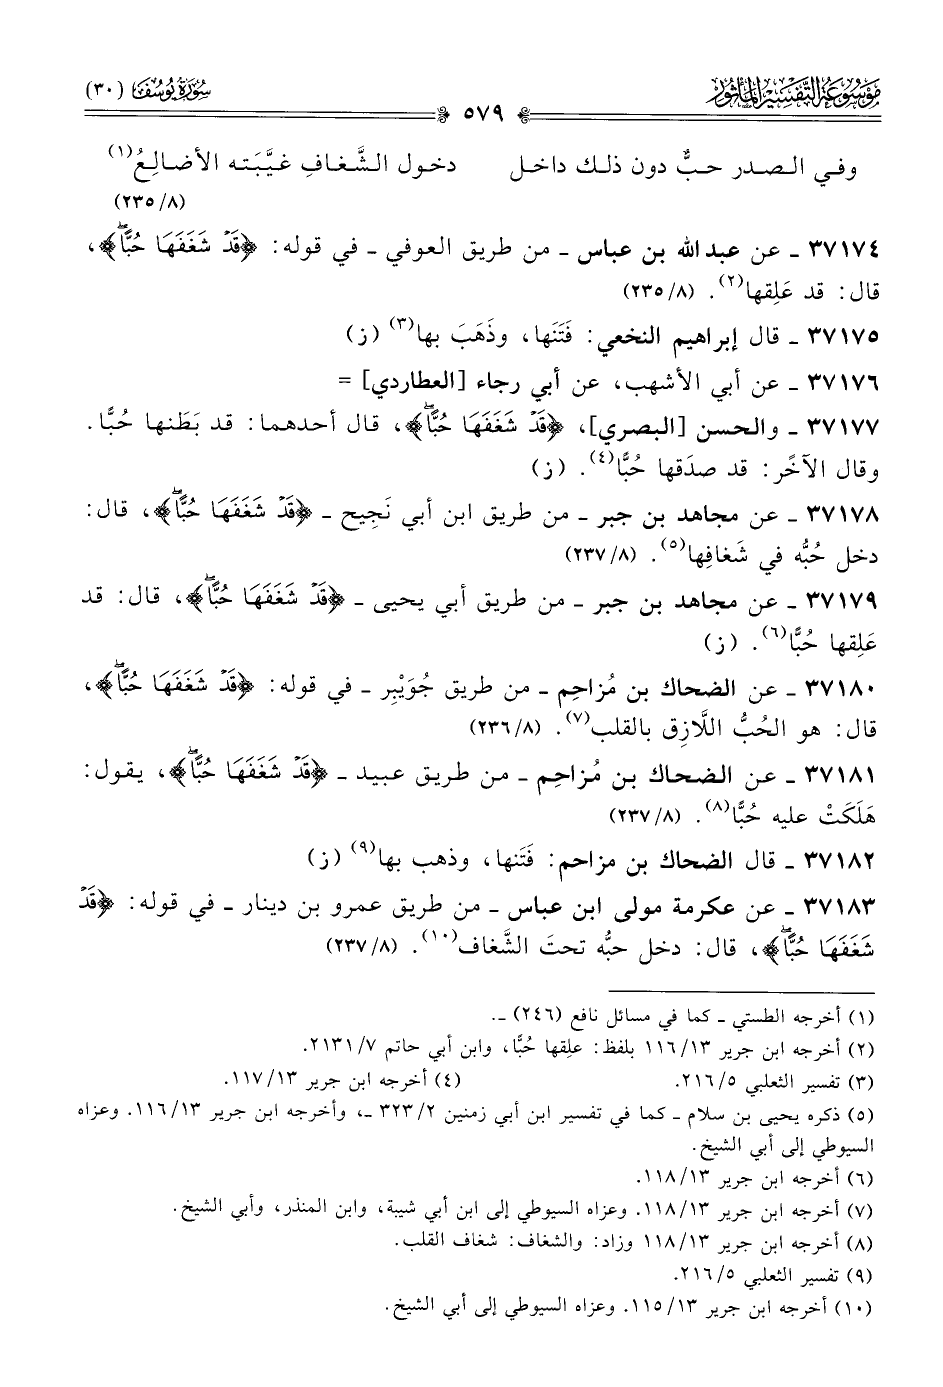 مَوْسُوعَة التَّفْسِيرِ المَأْثُور
سُورَةُ يُوسُف (٣٠)
٥٧٩
وفي الصدر حبٌّ دون ذلك داخل دخول الشَّغافِ غيَّبَته الأضالِعُ(١)
(٢٣٥/٨)
٣٧١٧٤ ـ عن عبد الله بن عباس ـ من طريق العوفي ـ في قوله: ﴿قَدْ شَغَفَهَا حُبًّاۖ﴾،
قال: قد عَلِقها(٢). (٢٣٥/٨)
٣٧١٧٥ ـ قال إبراهيم النخعي: فَتَنَها، وذَهَبَ بها(٣) (ز)
٣٧١٧٦ ـ عن أبي الأشهب، عن أبي رجاء [العطاردي] =
٣٧١٧٧ ـ والحسن [البصري]، ﴿قَدْ شَغَفَهَا حُبًّاۖ﴾، قال أحدهما: قد بَطَنها حُبًّا.
وقال الآخَر: قد صدَقها حُبًّا(٤). (ز)
٣٧١٧٨ ـ عن مجاهد بن جبر ـ من طريق ابن أبي نَجِيح ـ ﴿قَدْ شَغَفَهَا حُبًّاۖ﴾، قال:
دخل حُبُّه في شَغافِها(٥). (٢٣٧/٨)
٣٧١٧٩ ـ عن مجاهد بن جبر ـ من طريق أبي يحيى ـ ﴿قَدْ شَغَفَهَا حُبًّاۖ﴾، قال: قد
عَلِقها حُبًّا(٦). (ز)
٣٧١٨٠ ـ عن الضحاك بن مُزاحِم ـ من طريق جُوَيْبِر ـ في قوله: ﴿قَدْ شَغَفَهَا حُبًّاۖ﴾،
قال: هو الحُبُّ اللَّازِق بالقلب(٧). (٢٣٦/٨)
٣٧١٨١ ـ عن الضحاك بن مُزاحِم ـ من طريق عبيد ـ ﴿قَدْ شَغَفَهَا حُبًّاۖ﴾، يقول:
هَلَكَتْ عليه حُبًّا(٨). (٢٣٧/٨)
٣٧١٨٢ ـ قال الضحاك بن مزاحم: فَتَنها، وذهب بها(٩) (ز)
٣٧١٨٣ ـ عن عكرمة مولى ابن عباس ـ من طريق عمرو بن دينار ـ في قوله: ﴿قَدْ
شَغَفَهَا حُبًّاۖ﴾، قال: دخل حبُّه تحتَ الشَّغاف(١٠). (٢٣٧/٨)
(١) أخرجه الطستي ـ كما في مسائل نافع (٢٤٦) ـ.
(٢) أخرجه ابن جرير ١١٦/١٣ بلفظ: علِقها حُبًّا، وابن أبي حاتم ٢١٣١/٧.
(٣) تفسير الثعلبي ٢١٦/٥. (٤) أخرجه ابن جرير ١١٧/١٣.
(٥) ذكره يحيى بن سلام ـ كما في تفسير ابن أبي زمنين ٣٢٣/٢ ـ، وأخرجه ابن جرير ١١٦/١٣. وعزاه
السيوطي إلى أبي الشيخ.
(٦) أخرجه ابن جرير ١١٨/١٣.
(٧) أخرجه ابن جرير ١١٨/١٣. وعزاه السيوطي إلى ابن أبي شيبة، وابن المنذر، وأبي الشيخ.
(٨) أخرجه ابن جرير ١١٨/١٣ وزاد: والشغاف: شغاف القلب.
(٩) تفسير الثعلبي ٢١٦/٥.
(١٠) أخرجه ابن جرير ١١٥/١٣. وعزاه السيوطي إلى أبي الشيخ.